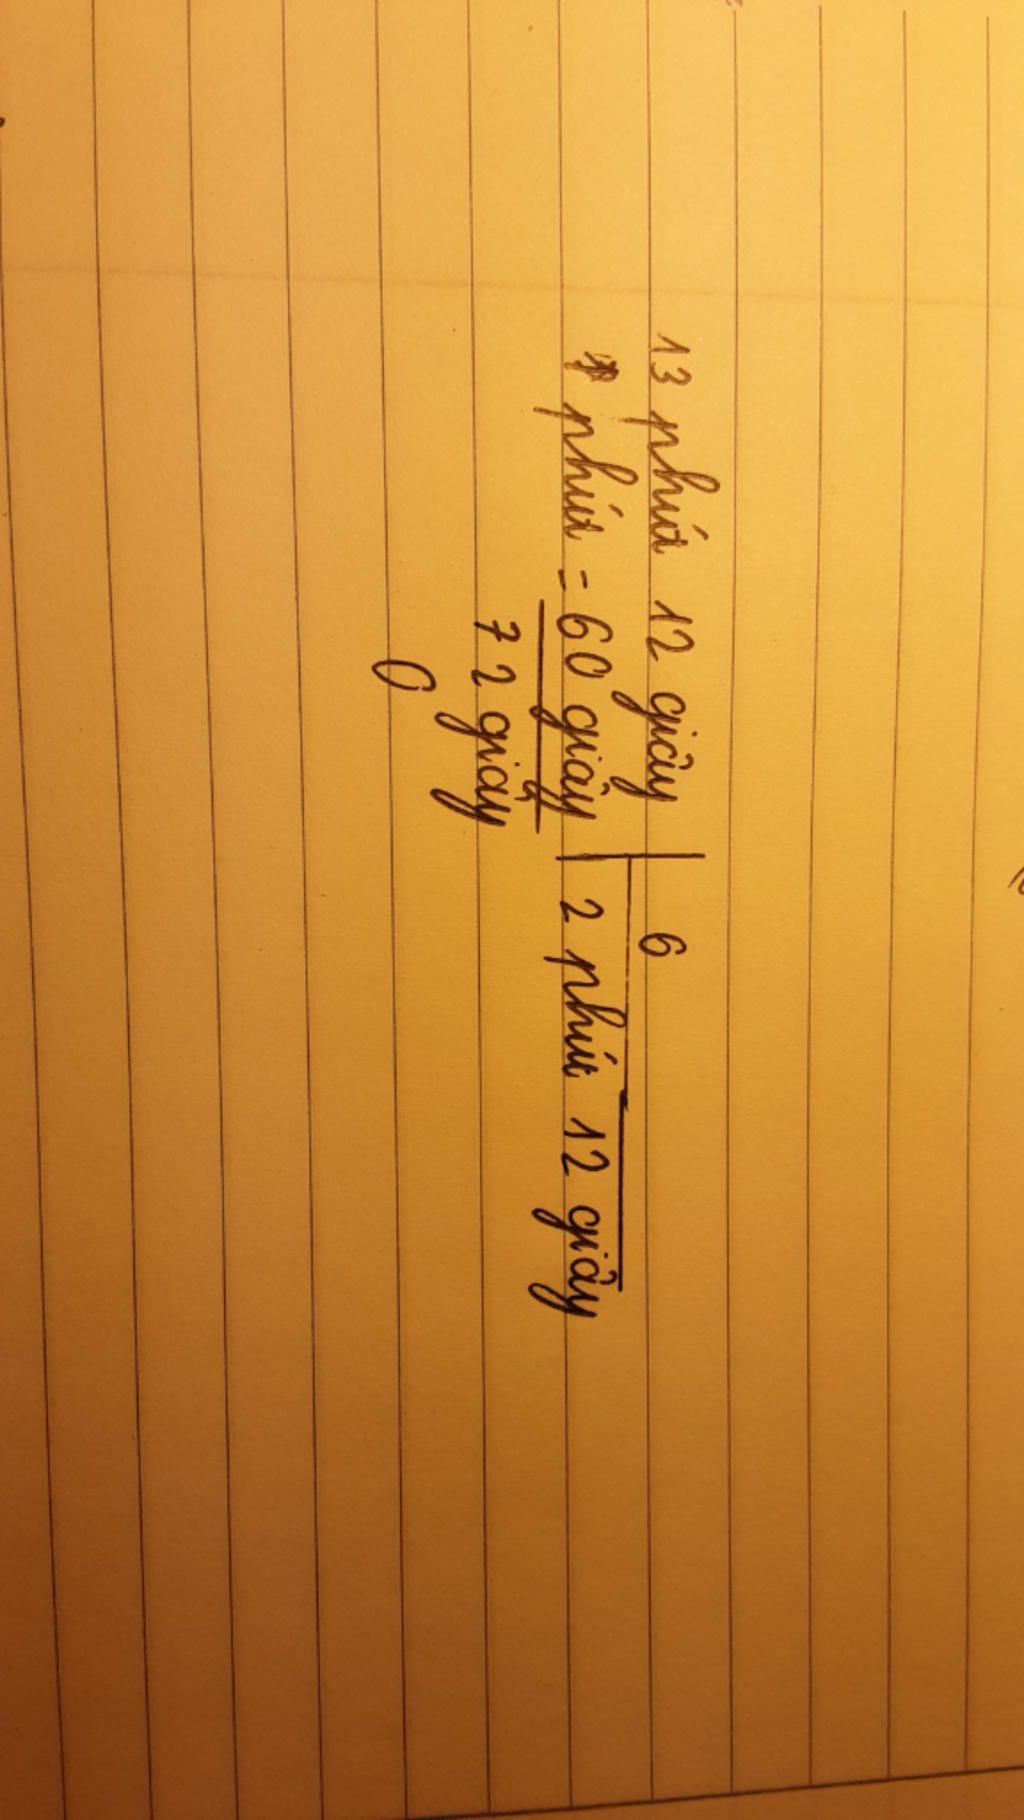 13 phút 12 giây | 6
1 phút = 60 giây | 2 phút 12 giây
72 giây
0